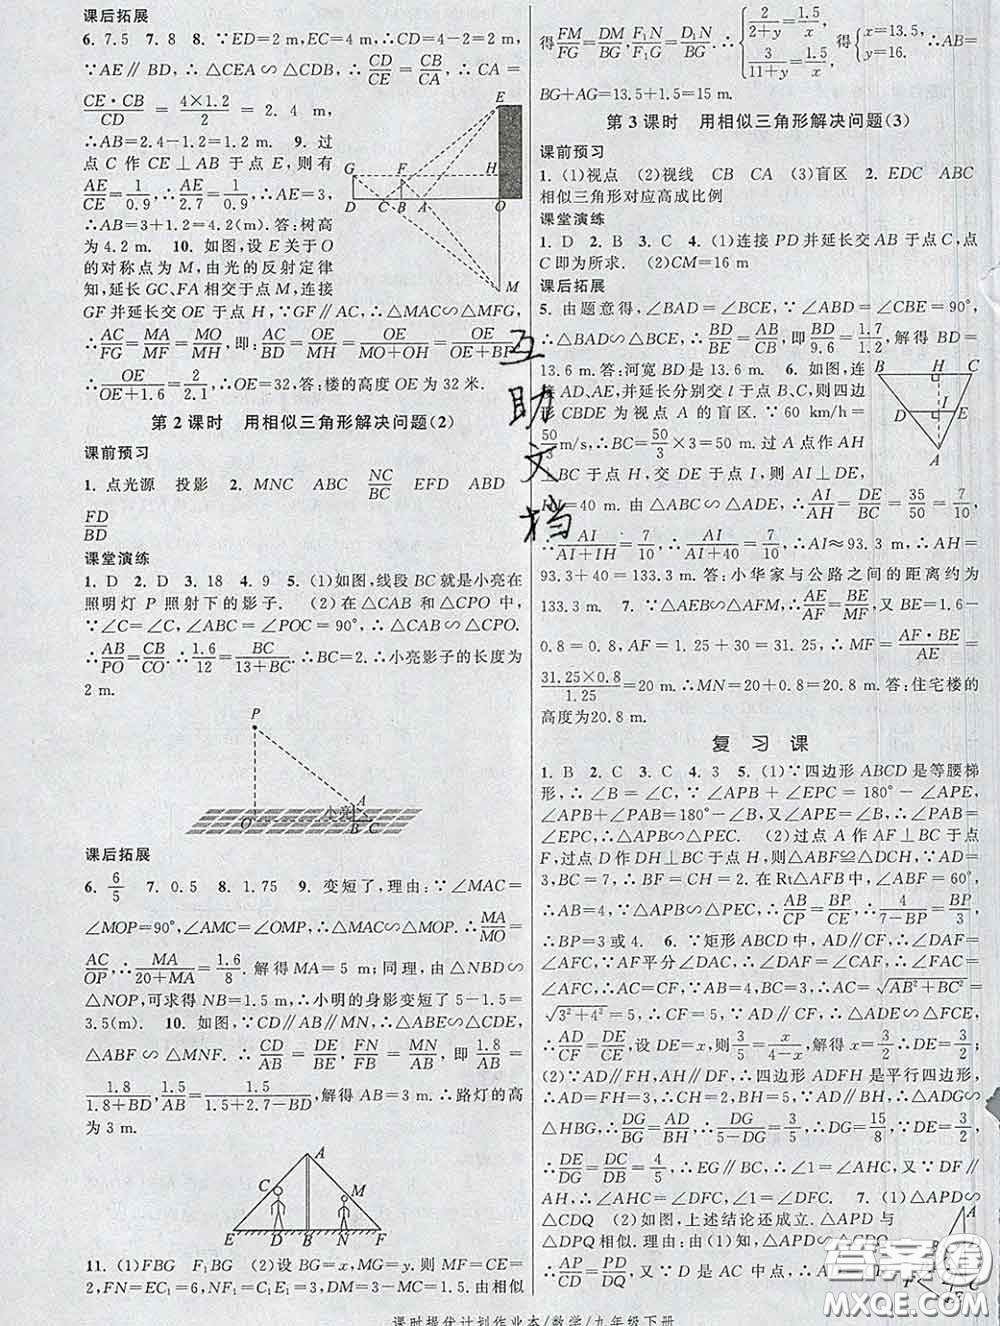 课后拓展
6. 7.5 7. 8 8. ∵ED=2 m,EC=4 m,∴CD=4-2=2 m,
∵AE∥BD,∴△CEA∽△CDB,∴CD/CB=CB/CA,∴CA=
CE·CB/CD=4×1.2/2=2.4 m,
∴AB=2.4-1.2=1.2 m 9. 过
点C作CE⊥AB于点E,则有
AE/CE=1/0.9,∴AE/2.7=1/0.9,∴AE=3,
∴AB=3+1.2=4.2(m).答:树高
为4.2 m. 10. 如图,设E关于O
的对称点为M,由光的反射定律
知,延长GC、FA相交于点M,连接
GF并延长交OE于点H,∵GF∥AC,∴△MAC∽△MFG,
∴AC/FG=MA/MF=MO/MH,即:AC/BD=OE/MH=OE/(MO+OH)=OE/(OE+BF)
∴OE/(OE+1.6)=2/2.1,∴OE=32,答:楼的高度OE为32米.
G F H E D C B A O M
第2课时 用相似三角形解决问题(2)
课前预习
1. 点光源 投影 2. MNC ABC NC/BC EFD ABD
FD/BD
课堂演练
1. D 2. D 3. 18 4. 9 5. (1)如图,线段BC就是小亮在
照明灯P照射下的影子. (2)在△CAB和△CPO中,
∵∠C=∠C,∠ABC=∠POC=90°,∴△CAB∽△CPO.
∴AB/PO=CB/CO.∴1.6/12=BC/(13+BC).∴BC=2.∴小亮影子的长度为
2 m.
P
小亮 A
O B C
课后拓展
6. 6/5 7. 0.5 8. 1.75 9. 变短了,理由:∵∠MAC=
∠MOP=90°,∠AMC=∠OMP,∴△MAC∽△MOP,∴MA/MO=
AC/OP,∴MA/(20+MA)=1.6/8.解得MA=5 m;同理,由△NBD∽
△NOP,可求得NB=1.5 m,∴小明的身影变短了5-1.5=
3.5(m). 10. 如图,∵CD∥AB∥MN,∴△ABE∽△CDE,
△ABF∽△MNF.∴CD/AB=DE/BE,FN/FB=MN/AB,即1.8/AB=
1.8/(1.8+BD),1.5/AB=1.5/(1.5+2.7-BD),解得AB=3 m.∴路灯的高
为3 m.
A
C M
E D B N F
11. (1)FBG F₁BG (2)设BG=x,MG=y.则MF=CE=
2,FN=EC₁=6,F₁N=C₁E₁=3,DM=3-MC=1.5.由相似
得FM/FG=DM/BG,F₁N/F₁G=D₁N/BG.∴{2/(2+y)=1.5/x, 3/(11+y)=1.5/x,得{x=13.5, y=16.∴AB=
BG+AG=13.5+1.5=15 m.
第3课时 用相似三角形解决问题(3)
课前预习
1. (1)视点 (2)视线 CB CA (3)盲区 2. EDC ABC
相似三角形对应高成比例
课堂演练
1. D 2. B 3. C 4. (1)连接PD并延长交AB于点C,点
C即为所求. (2)CM=16 m
课后拓展
5. 由题意得,∠BAD=∠BCE,∵∠ABD=∠CBE=90°,
∴△BAD∽△BCE,∴BD/BE=AB/CB,即BD/9.6=1.7/1.2,解得BD=
13.6 m.答:河宽BD是13.6 m. 6. 如图,连
接AD、AE,并延长分别交l于点B、C,则四边
形CBDE为视点A的盲区.∵60 km/h=
50/3 m/s,∴BC=50/3×3=50 m.过点A作AH
⊥BC于点H,交DE于点I,则AI⊥DE,
IH=40 m.由△ABC∽△ADE,∴AI/AH=DE/BC=35/50=7/10
∴AI/(AI+IH)=7/10,∴AI/(AI+40)=7/10,∴AI≈93.3 m,∴AH=
93.3+40=133.3 m.答:小华家与公路之间的距离约为
133.3 m. 7. ∵△AEB∽△AFM,∴AE/AF=BE/MF,又BE=1.6-
0.8=0.8,AF=1.25+30=31.25,∴MF=AF·BE/AE=
31.25×0.8/1.25=20 m.∴MN=20+0.8=20.8 m.答:住宅楼的
高度为20.8 m.
B H C
D I E
A
复习课
1. B 2. C 3. C 4. 3 5. (1)∵四边形ABCD是等腰梯
形,∴∠B=∠C,∵∠APB+∠EPC=180°-∠APE,
∠APB+∠PAB=180°-∠B,又∠APE=∠B,∴∠PAB=
∠EPC,∴△APB∽△PEC. (2)过点A作AF⊥BC于点
F,过点D作DH⊥BC于点H,则△ABF≌△DCH,∵AD=
3,BC=7,∴BF=CH=2.在Rt△AFB中,∠ABF=60°,
∴AB=4,∵△APB∽△PEC,∴AB/CP=BP/CE,∴4/(7-BP)=BP/3,
∴BP=3或4. 6. ∵矩形ABCD中,AD∥CF,∴∠DAF=
∠AFC,∵AF平分∠DAC,∴∠DAF=∠FAC,∴∠FAC=
∠AFC,∴AC=CF,∵AB=4,BC=3,∴AC=√(AB²+BC²)=
√(3²+4²)=5,∴CF=5,∵AD∥CF,∴△ADE∽△FCE,
∴AD/CF=DE/CE,设DE=x,则3/5=x/(4-x),解得x=3/2,∴DE=3/2;
(2)∵AD∥FH,AF∥DH,∴四边形ADFH是平行四边形,
∴AD=FH=3,∴CH=2,BH=5,∵AD∥BH,∴△ADG∽
△HBG,∴DG/BG=AD/BH,∴DG/(5-DG)=3/5,∴DG=15/8,∵DE=3/2,
∴DE/DG=DC/DB=4/5,∴EG∥BC,∴∠1=∠AHC,又∵DF∥
AH,∴∠AHC=∠DFC,∠1=∠DFC. 7. (1)△APD∽
△CDQ (2)如图,上述结论还成立.△APD与
△DPQ相似.理由:由(1)知,△APD∽△CDQ.
∴AP/CD=PD/DQ,又∵D是AC中点,∴AD=CD,
互助文档
答案圈
课时提优计划作业本/数学/九年级下册